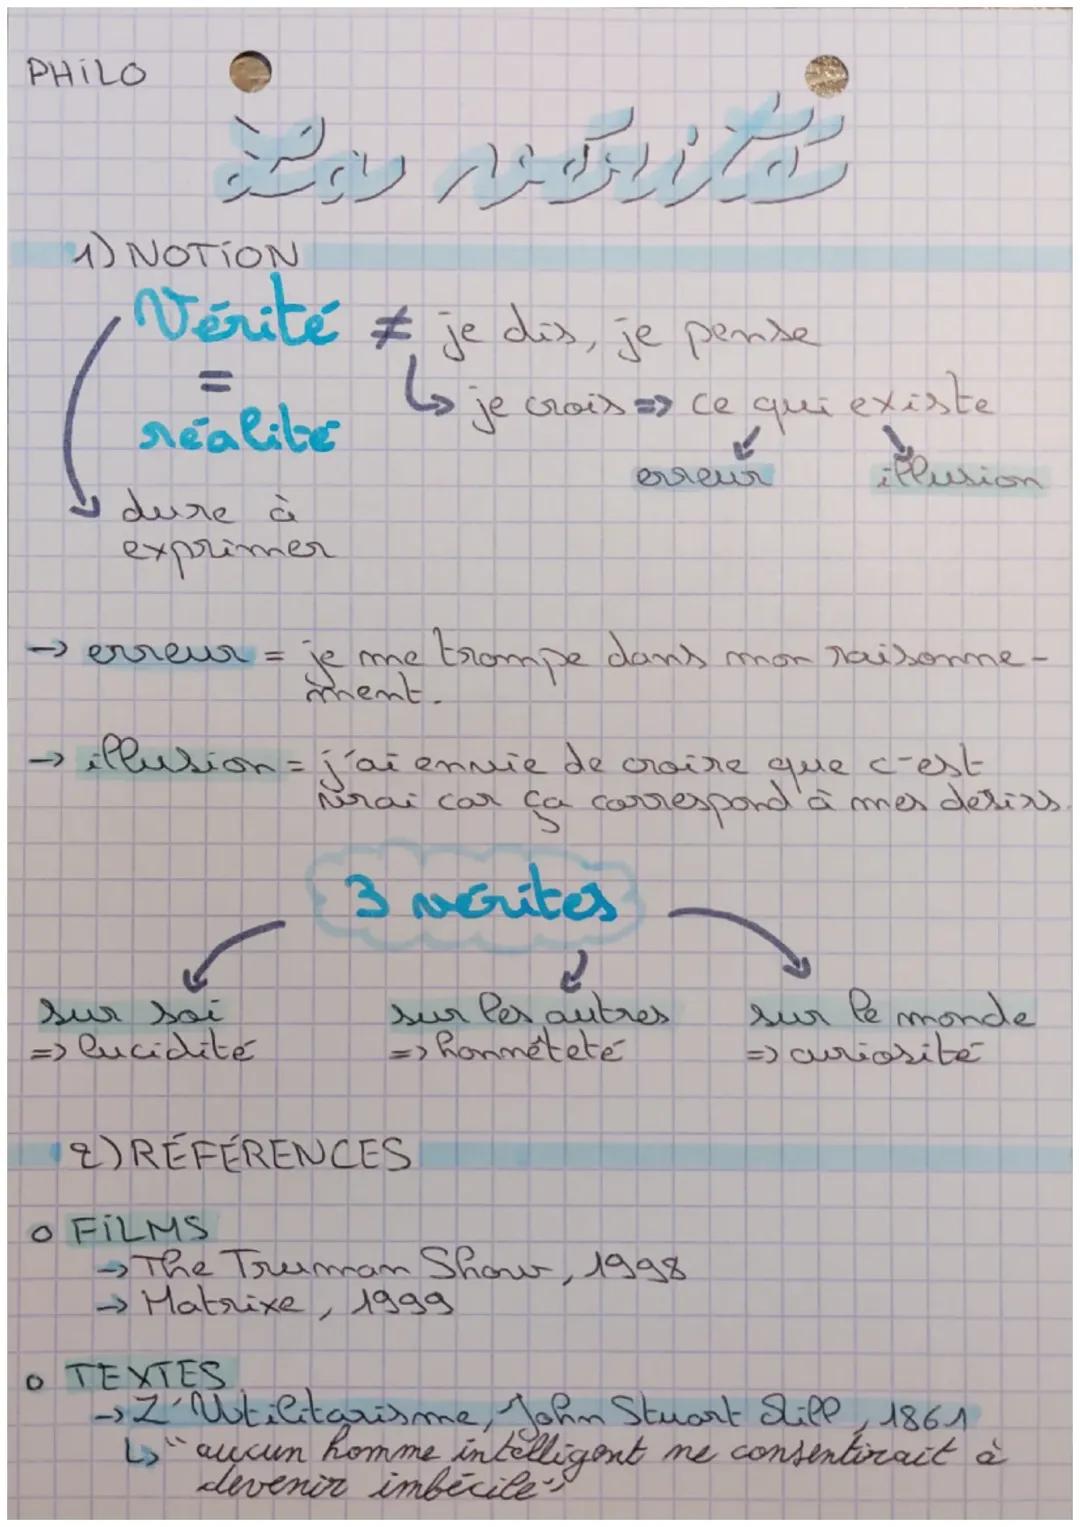 PHiLO
1) NOTiON
Vérité ≠ je dis, je pense
= ↳ je crois => ce qui existe
réalité
erreur illusion
dure à
exprimer
→ erreur = je me trompe dans mon raisonne-
ment.
→ illusion = j'ai envie de croire que c'est
vrai car ça correspond à mes desirs.
3 vérites
sur soi sur les autres sur le monde
=> lucidité => honnêteté => curiosité
2) RÉFÉRENCES
o FiLMS
→ The Truman Show, 1998
→ Matrixe, 1999
o TEXTES
→ L'Utilitarisme, John Stuart Mill, 1861
↳ "aucun homme intelligent ne consentirait à
devenir imbécile"